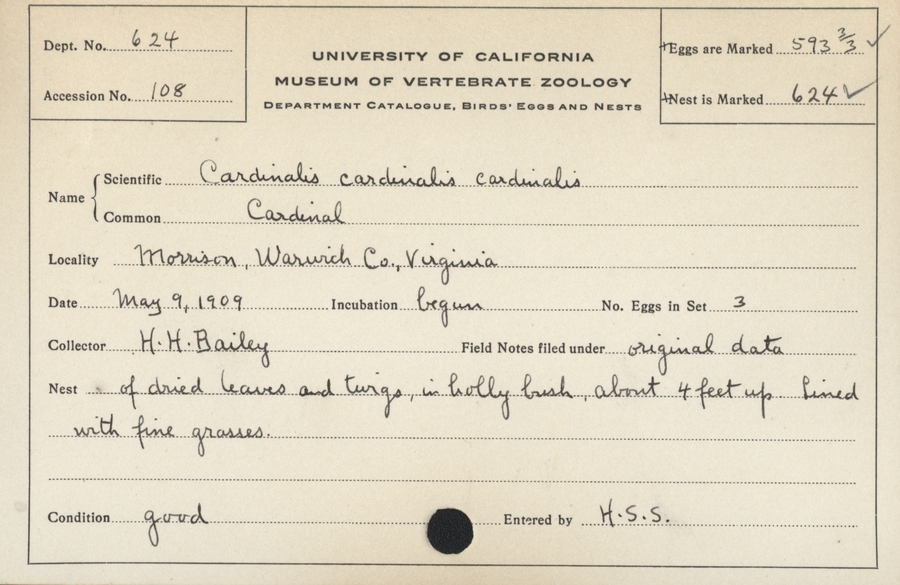 Dept. No. 624
Accession No. 108
UNIVERSITY OF CALIFORNIA
MUSEUM OF VERTEBRATE ZOOLOGY
DEPARTMENT CATALOGUE, BIRDS' EGGS AND NESTS
Eggs are Marked 593 3/3 ✓
Nest is Marked 624 ✓
Name { Scientific Cardinalis cardinalis cardinalis
Common Cardinal
Locality Morrison, Warwich Co., Virginia
Date May 9, 1909 Incubation begun No. Eggs in Set 3
Collector H.H. Bailey Field Notes filed under original data
Nest of dried leaves and twigs, in holly bush, about 4 feet up Lined
with fine grasses.
Condition good Entered by H.S.S.